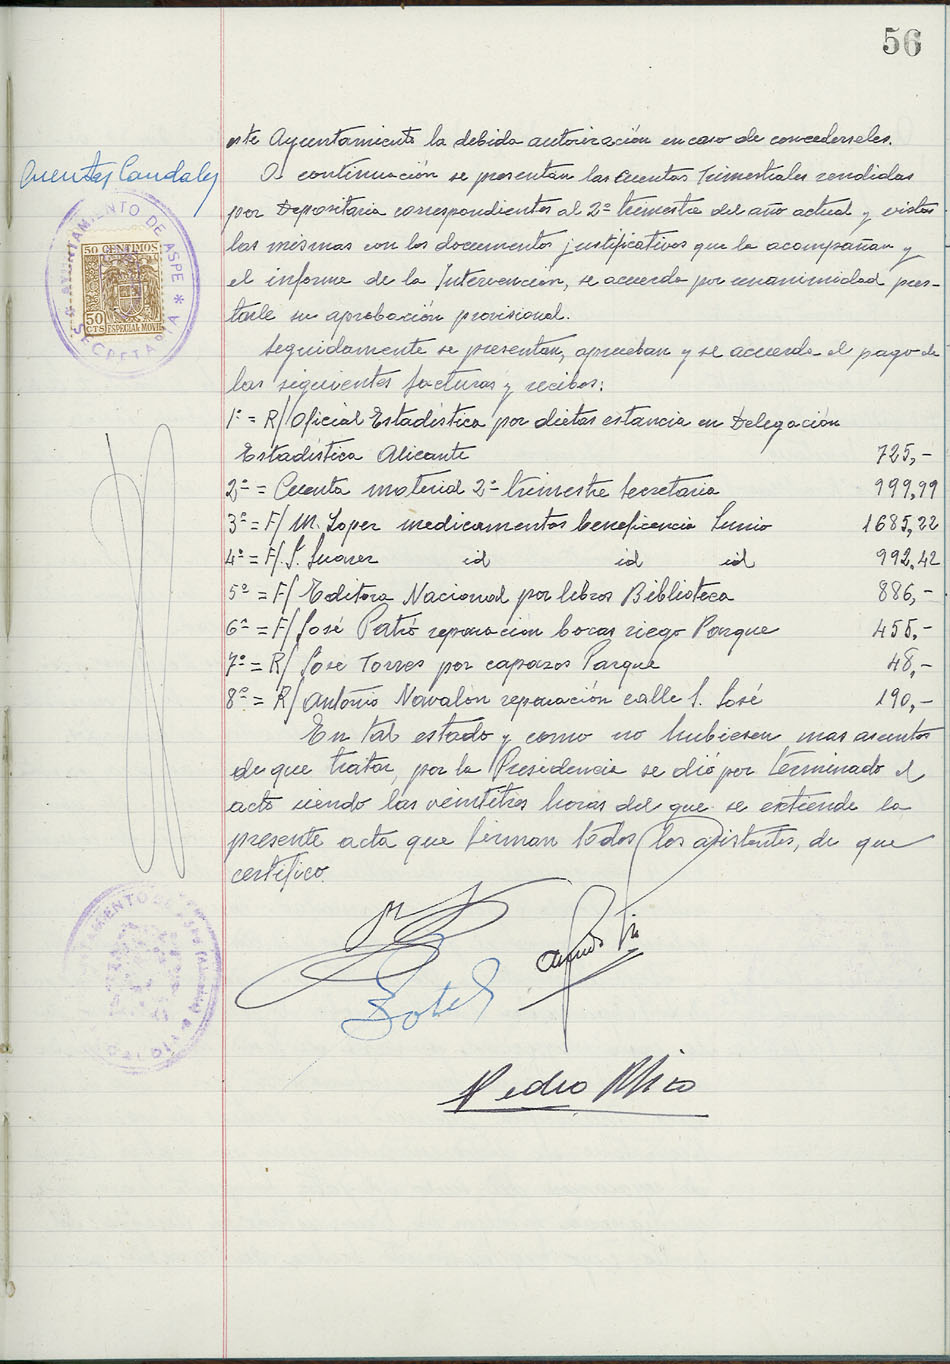 56
este Ayuntamiento la debida autorización en caso de concederseles.
Cuentas Caudales
A continuación se presentan las Cuentas Trimestrales rendidas
por Depositaria correspondientes al 2º trimestre del año actual y vistas
las mismas con los documentos justificativos que la acompañan y
el informe de la Intervención, se acuerda por unanimidad pres-
tarle su aprobación provisional.
Seguidamente se presentan, aprueban y se acuerda el pago de
las siguientes facturas y recibos:
1º = R/ Oficial Estadística por dietas estancia en Delegación
Estadística Alicante 725,-
2º = Cuenta material 2º trimestre Secretaria 999,99
3º = F/ M. Lopez medicamentos beneficencia Junio 1685,22
4º = F/. S. Suarez id id id 992,42
5º = F/ Editora Nacional por libros Biblioteca 886,-
6º = F/ José Patró reparación bocas riego Parque 455,-
7º = R/ José Torres por capazos Parque 48,-
8º = R/ Antonio Navalón reparación calle S. José 190,-
En tal estado y como no hubiesen mas asuntos
de que tratar, por la Presidencia se dió por terminado el
acto siendo las veintitres horas del que se extiende la
presente acta que firman todos los asistentes, de que
certifico.
Botel
Pedro Rico
AYUNTAMIENTO DE ASPE * SECRETARIA *
50 CENTIMOS
50 CTS ESPECIAL MOVIL
AYUNTAMIENTO DE ASPE (Alicante) ALCALDIA